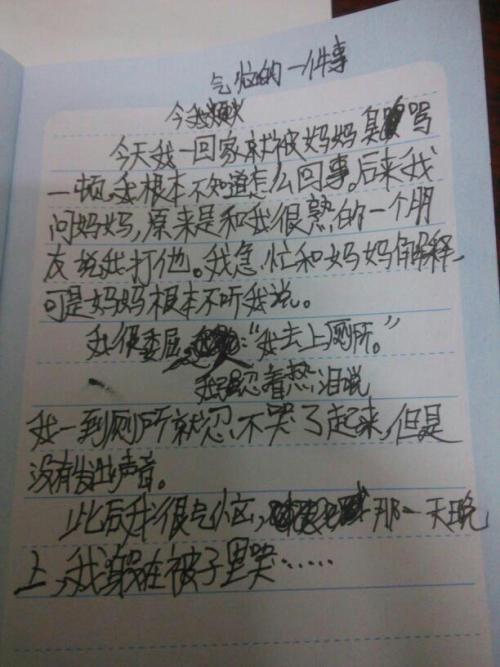 气忙的一件事
今天我一回家就被妈妈臭骂
一顿,我根本不知道怎么回事。后来我
问妈妈,原来是和我很熟的一个朋
友说我打他。我急忙和妈妈解释,
可是妈妈根本不听我说。
我很委屈:“我去上厕所。”
我强忍着热泪说
我一到厕所就忍不哭了起来,但是
没有发出声音。
此后我很气,那一天晚
上,我躲在被子里哭……